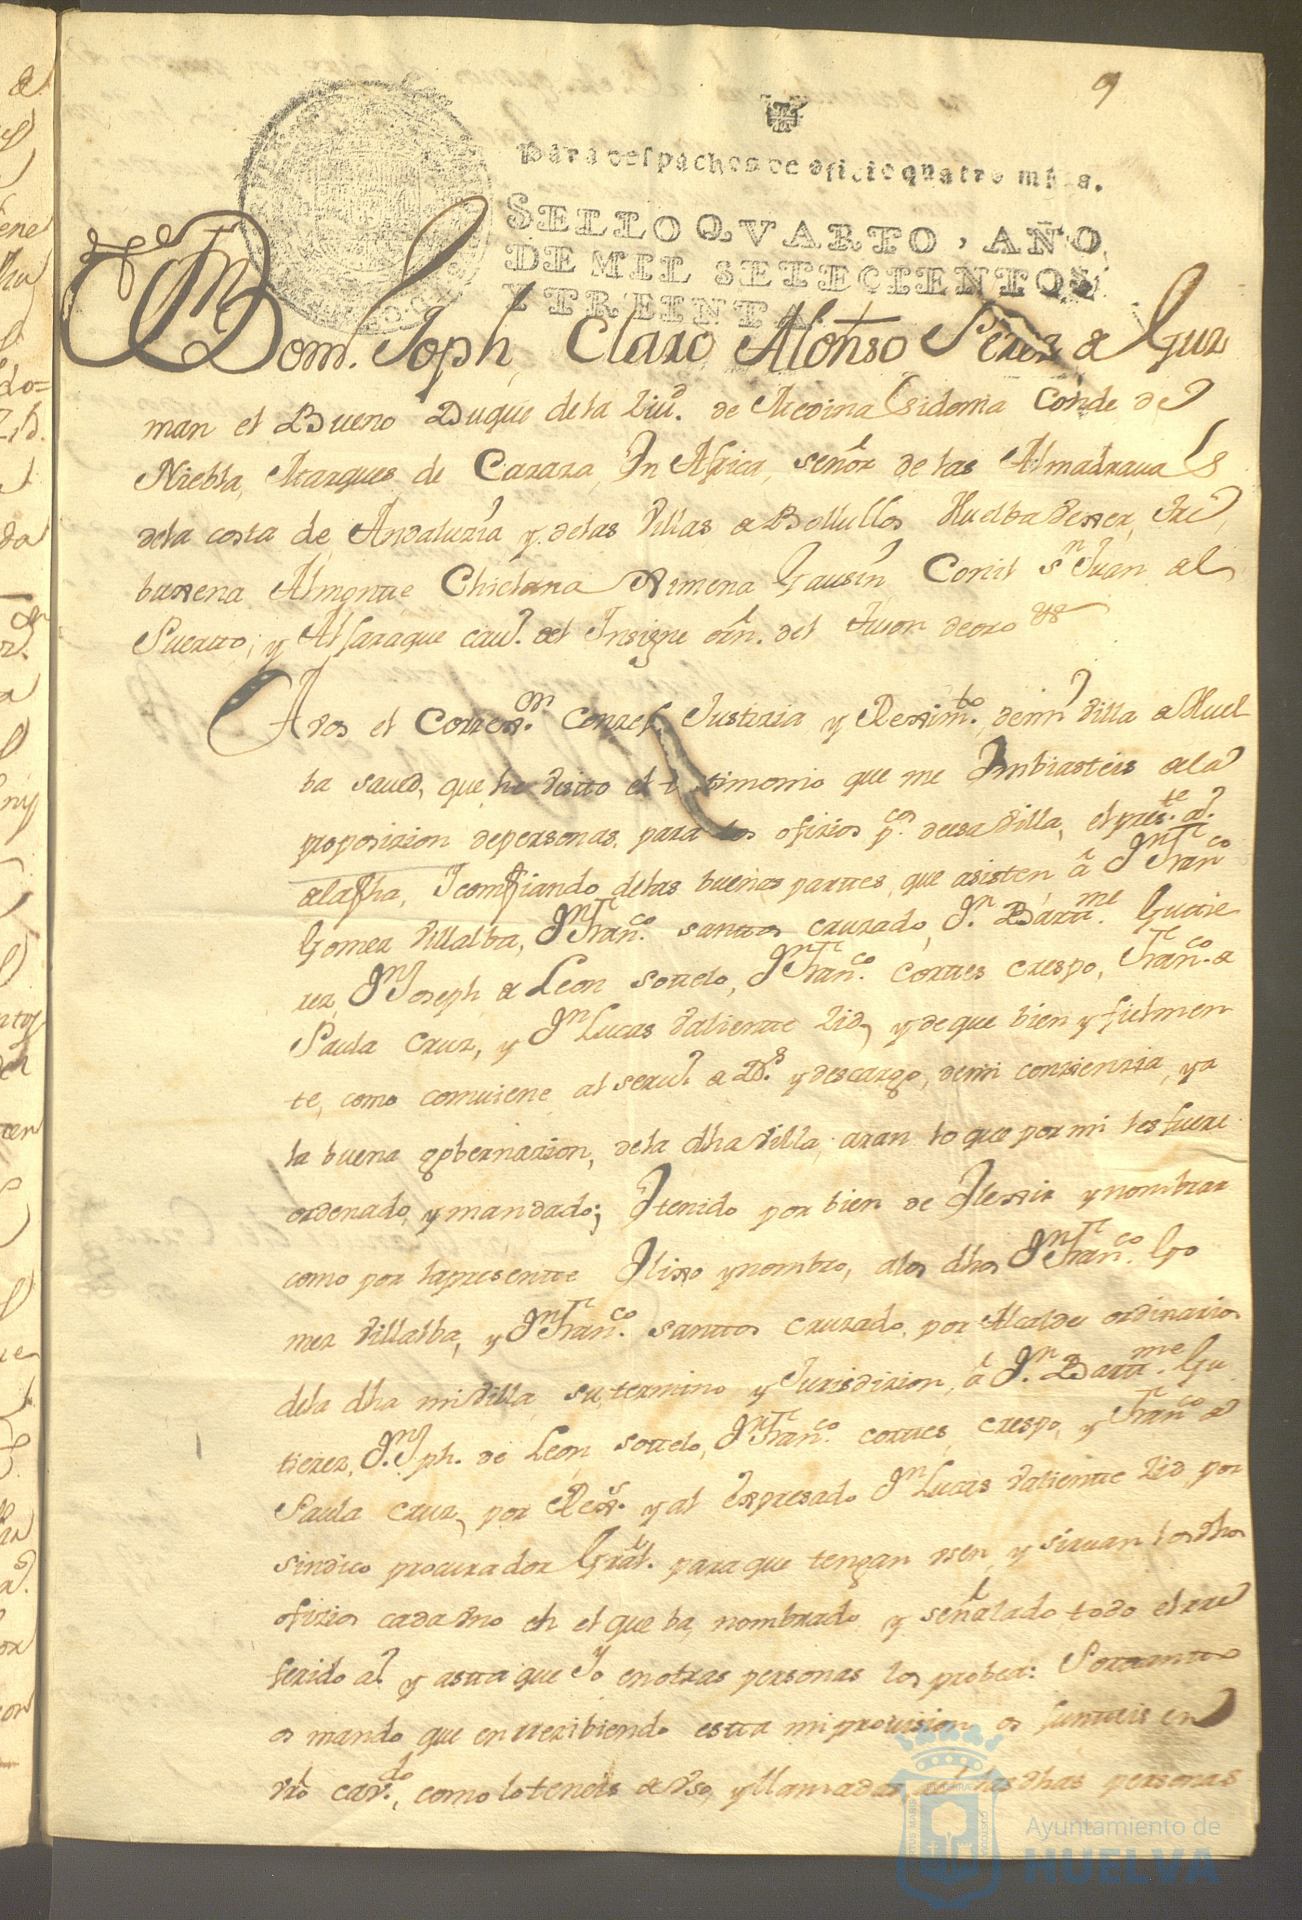 9
Para despachos de oficio quatro mrs.
SELLO QVARTO, AÑO
DE MIL SETECIENTOS
Y TREINTA
Dom. Joph Claro Alonso Perez de Guz
man el Bueno Duque de la Ziud. de Medina Sidonia Conde de
Niebla, Marques de Cazaza, En Africa, señor de las Almadrauas
de la costa de Andaluzia y delas Villas de Bollullos Huelba
barrena Almonte Chiclana Ximena Gausin, Conil Sn Juan del
Puerto, y Alfaraque cau.o del Insigne orn. del tuson de oro &
A vos el Correxor. Conzejo Justizia y Reximto. demi Villa de Huel
ba saued, que he visto el testimonio que me Imbiasteis de la
proposizion de personas, para los ofizios pcos. desa Villa, el preste. a.o
de la fha, I comfiando, delas buenas partes, que asisten â Dn Franco
Gomez Villalba, Dn Franco. santtos cruzado, Dn. Barttme. Gutie
rez, Dn Joseph de Leon Sottelo, Dn Franco. Corttes crespo, Franco. de
Paula Cruz, y Dn Lucas Valientte Zid, y de que bien y fielmen
te, como comuiene, al seruo. de Ds. y descargo, demi conzienzia, y a
la buena gobernazion, dela dha Villa, aran lo que por mi les fuere
ordenado, y mandado; E tenido por bien de Elexir y nombrar
como por la presentte Elixo y nombro, a los dhos Dn Franco. Go
mez Villalba, y Dn Franco. santtos cruzado, por Alcaldes ordinarios
dela dha mi Villa, su termino y Jurisdizion, â Dn. Barttme. Gu
tierez, Dn. Jph. de Leon Sottelo, Dn Franco. corttes crespo, y Franco de
Paula Cruz, por Rexs. y al Expresado Dn Lucas Valientte Zid, por
sindico procurador Gral. para que tengan vsen, y siruan los dhos
ofizios cada vno en el que ba, nombrado, y señalado todo el rre
ferido a.o y astta que Yo en otras personas los probea: Portantto
os mando que en rrezibiendo estta mi prouision, os junteis en
vro cavdo., como lo teneis de vso, y llamadas, las dhas personas
Ayuntamiento de
HUELVA